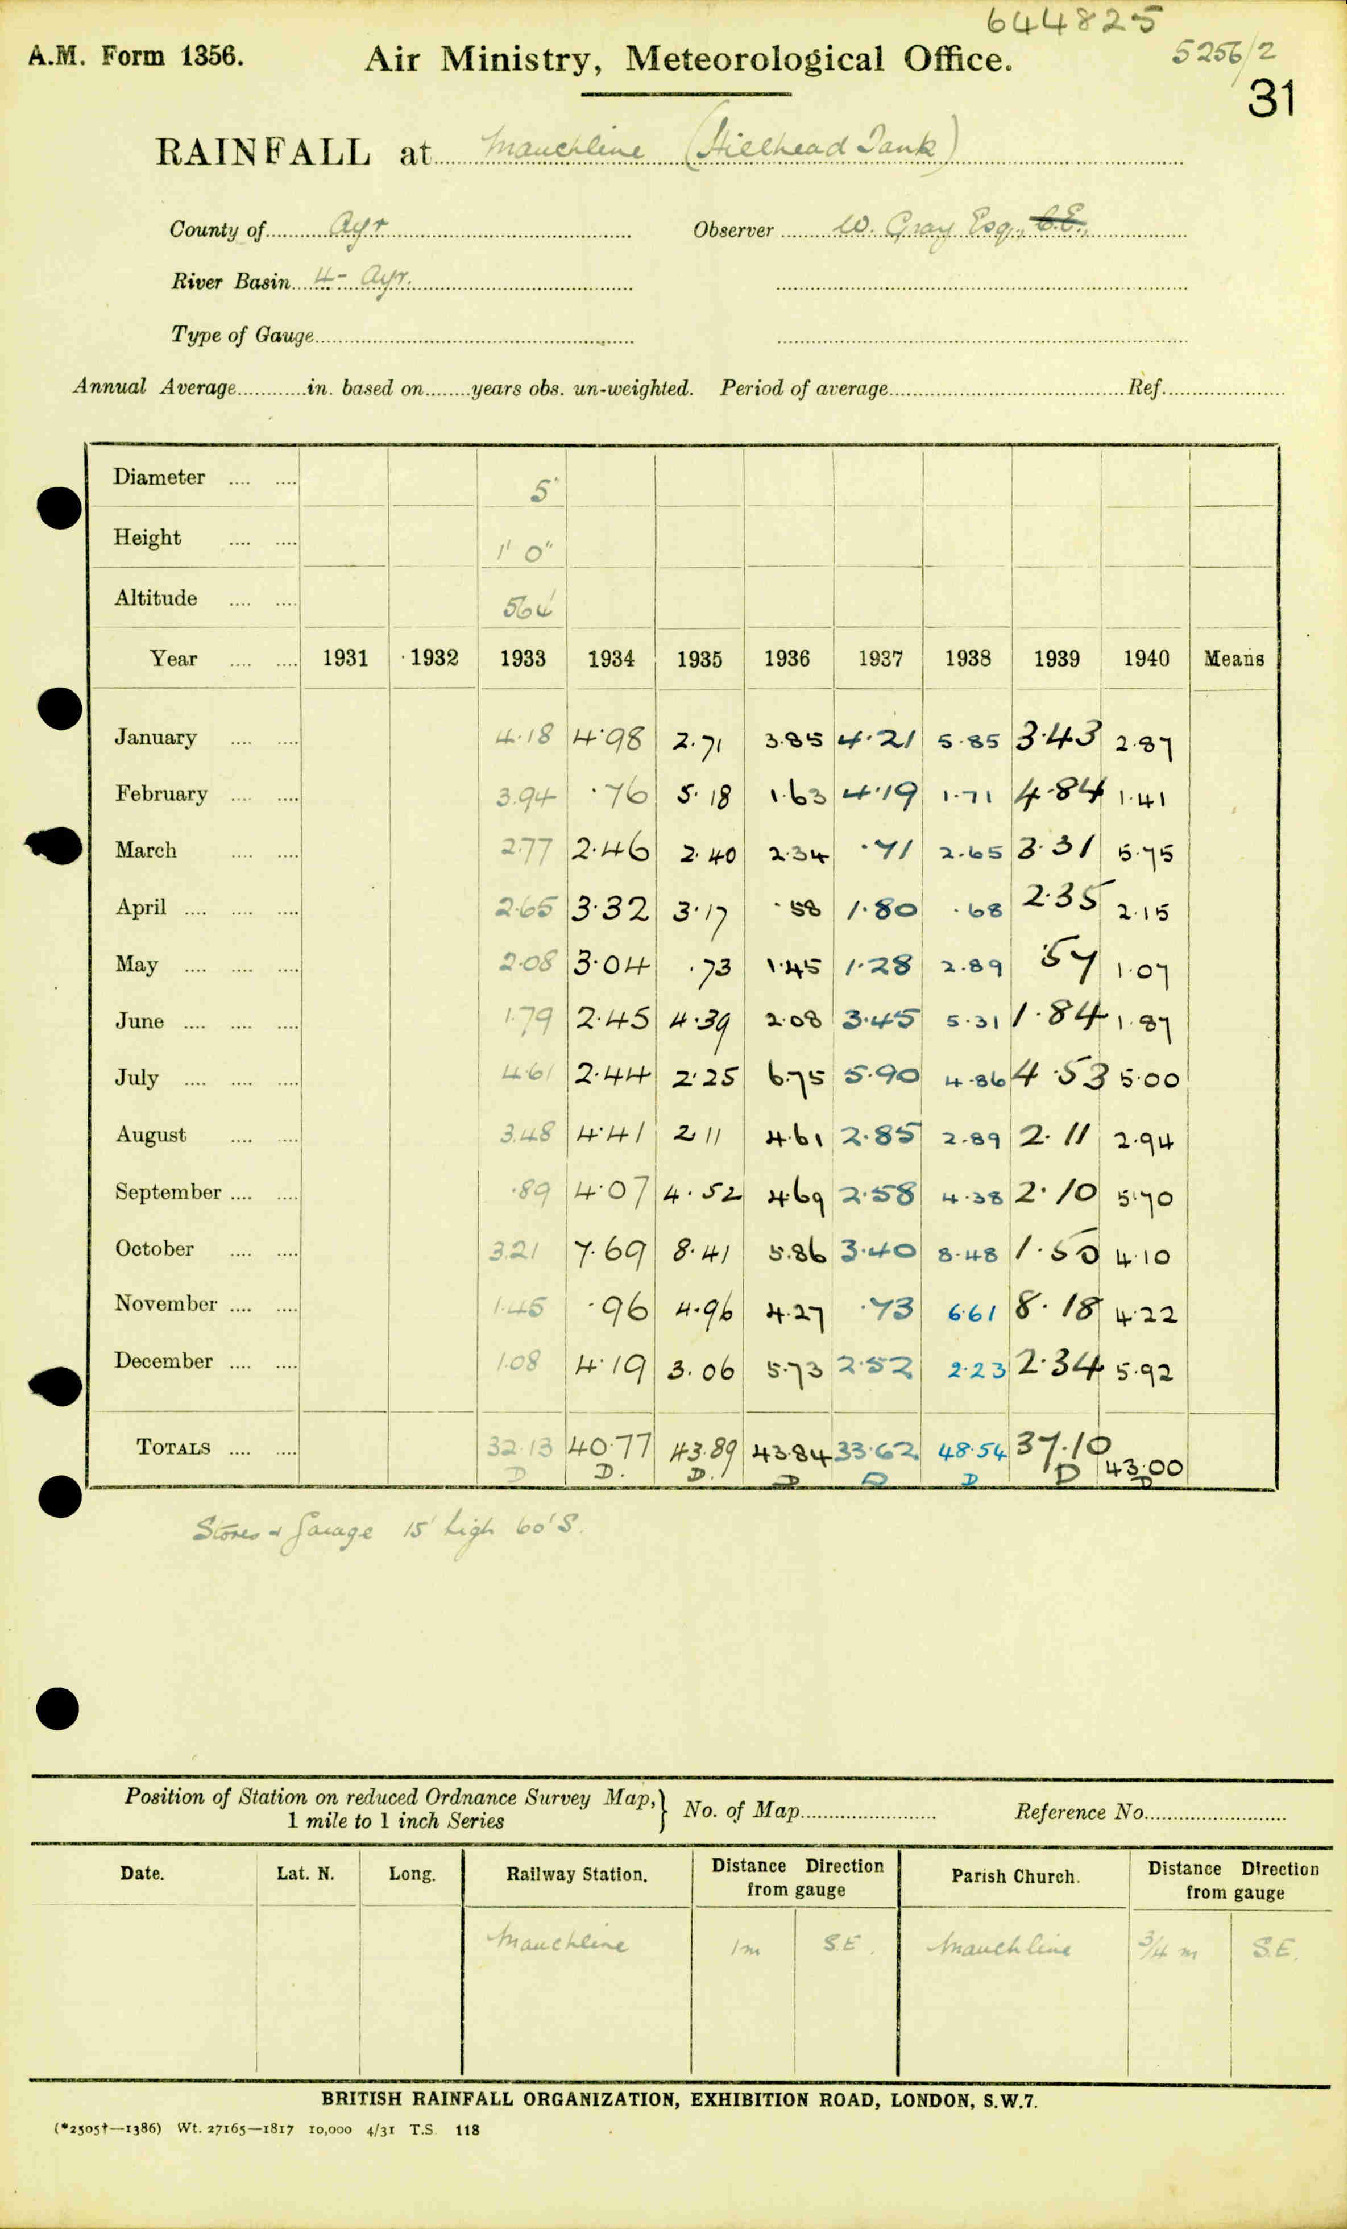 644825
5256/2
A.M. Form 1356. Air Ministry, Meteorological Office.
31
RAINFALL at Mauchline (Hillhead Tank)
County of Ayr Observer W. Gray Esq., C.E.,
River Basin 4- Ayr.
Type of Gauge
Annual Average in. based on years obs. un-weighted. Period of average Ref.
Diameter 5"
Height 1' 0"
Altitude 564'
Year 1931 1932 1933 1934 1935 1936 1937 1938 1939 1940 Means
January 4.18 4.98 2.71 3.85 4.21 5.85 3.43 2.87
February 3.94 .76 5.18 1.63 4.19 1.71 4.84 1.41
March 2.77 2.46 2.40 2.34 .71 2.65 3.31 5.75
April 2.65 3.32 3.17 .58 1.80 .68 2.35 2.15
May 2.08 3.04 .73 1.45 1.28 2.89 .57 1.07
June 1.79 2.45 4.39 2.08 3.45 5.31 1.84 1.87
July 4.61 2.44 2.25 6.75 5.90 4.86 4.53 5.00
August 3.48 4.41 2.11 4.61 2.85 2.89 2.11 2.94
September .89 4.07 4.52 4.69 2.58 4.38 2.10 5.70
October 3.21 7.69 8.41 5.86 3.40 8.48 1.50 4.10
November 1.45 .96 4.96 4.27 .73 6.61 8.18 4.22
December 1.08 4.19 3.06 5.73 2.52 2.23 2.34 5.92
TOTALS 32.13 40.77 43.89 43.84 33.62 48.54 37.10 43.00
D D. D. D D D D D
Stores & Garage 15' high 60' S.
Position of Station on reduced Ordnance Survey Map, 1 mile to 1 inch Series } No. of Map Reference No.
Date. Lat. N. Long. Railway Station. Distance Direction from gauge Parish Church. Distance Direction from gauge
Mauchline 1m S.E. Mauchline 3/4 m S.E.
BRITISH RAINFALL ORGANIZATION, EXHIBITION ROAD, LONDON, S.W.7.
(*2505†—1386) Wt. 27165—1817 10,000 4/31 T.S. 118